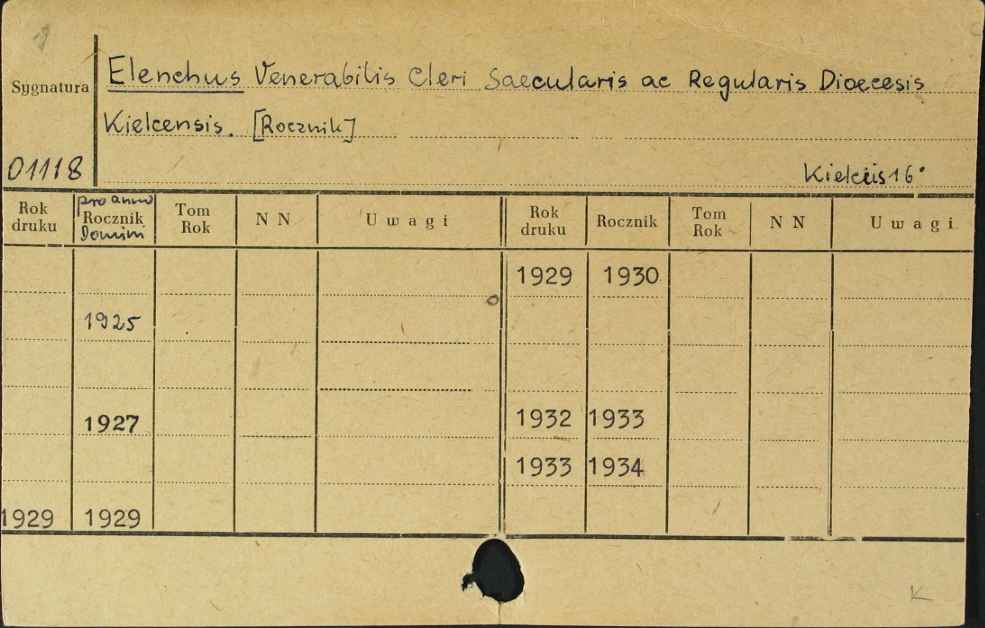 Sygnatura
Elenchus Venerabilis Cleri Saecularis ac Regularis Dioecesis
Kielcensis. [Rocznik]
01118
Kielciis 16°
Rok druku
pro anno Rocznik Domini
Tom Rok
N N
Uwagi
Rok druku
Rocznik
Tom Rok
N N
Uwagi
1929 1930
1925
1927
1932 1933
1933 1934
1929 1929
K